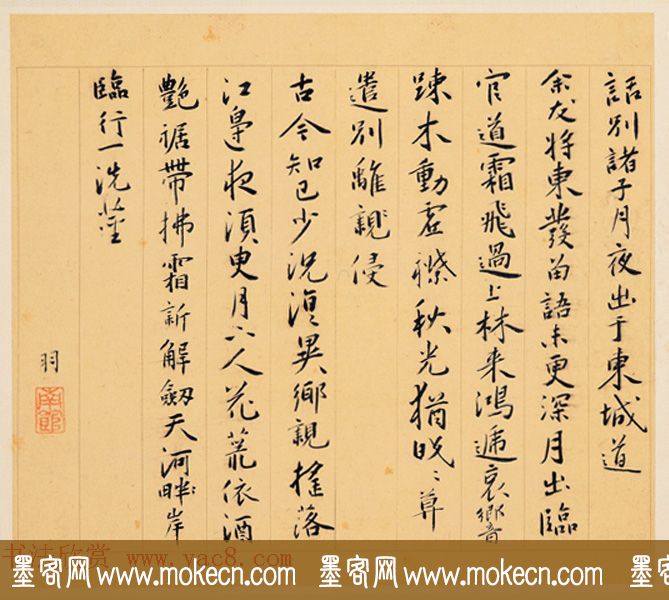 話別諸子月夜出于東城道
余友將東發留語未更深月出臨
官道霜飛過上林来鴻遞哀響
踈木動虛襟秋光猶
遣別離親侵
古今知己少況復異鄉親搖落
江皋夜須臾月下人花蘢依酒
艷裾帶拂霜新解劔天河畔岸
臨行一洗塵
羽
书法欣赏 www.yac8.com
墨客网 www.mokecn.com 墨客网 www.mokecn.com